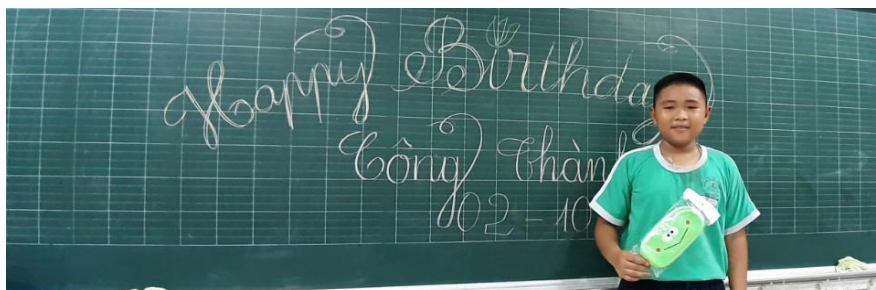 Happy Birthday
Công Thành
02 - 10